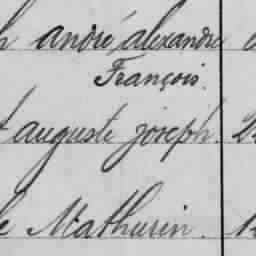 h andré, alexandre
François.
t auguste joseph.
le Mathurin.